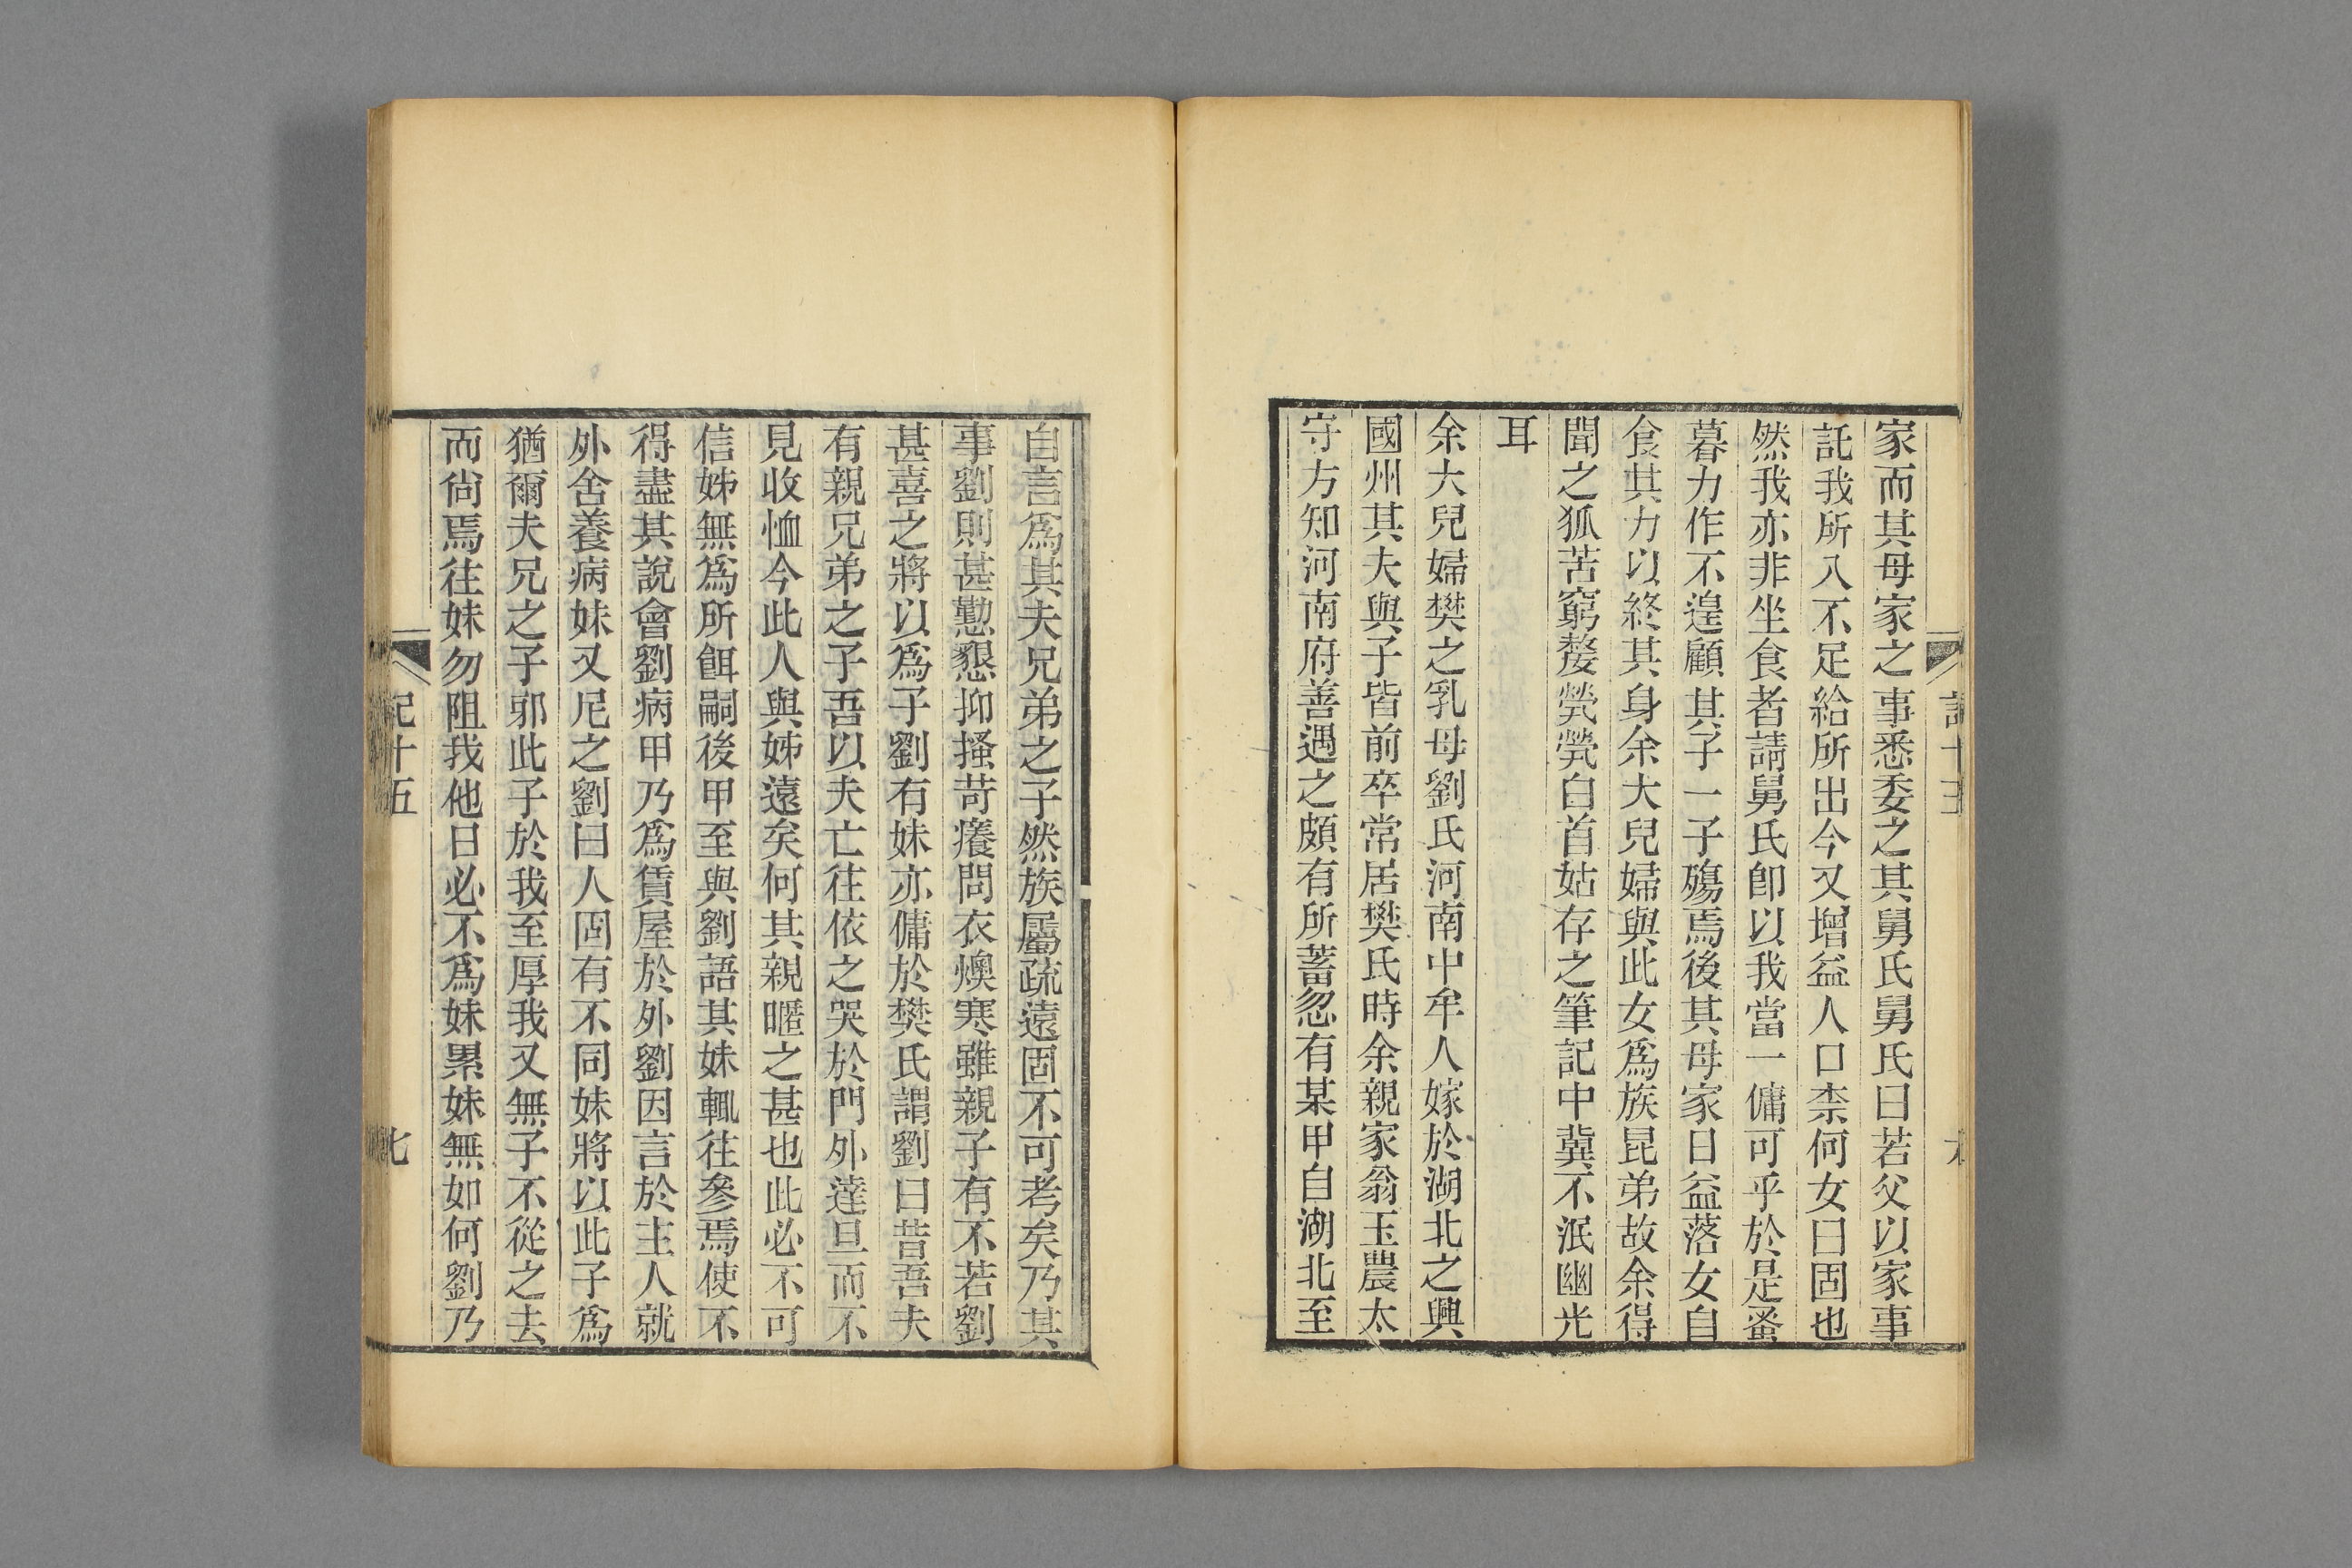 家而其母家之事悉委之其舅氏舅氏曰若父以家事
託我所入不足給所出今又增益人口柰何女曰固也
然我亦非坐食者請舅氏卽以我當一傭可乎於是蚤
暮力作不遑顧其子一子殤焉後其母家日益落女自
食其力以終其身余大兒婦與此女爲族昆弟故余得
聞之狐苦窮嫠煢煢白首姑存之筆記中冀不泯幽光
耳
余大兒婦樊之乳母劉氏河南中牟人嫁於湖北之興
國州其夫與子皆前卒常居樊氏時余親家翁玉農太
守方知河南府善遇之頗有所蓄忽有某甲自湖北至
自言爲其夫兄弟之子然族屬疏遠固不可考矣乃其
事劉則甚懃懇抑搔苛癢問衣燠寒雖親子有不若劉
甚喜之將以爲子劉有妹亦傭於樊氏謂劉曰昔吾夫
有親兄弟之子吾以夫亡往依之哭於門外達旦而不
見收恤今此人與姊遠矣何其親暱之甚也此必不可
信姊無爲所餌嗣後甲至與劉語其妹輒往參焉使不
得盡其說會劉病甲乃爲賃屋於外劉因言於主人就
外舍養病妹又尼之劉曰人固有不同妹將以此子爲
猶爾夫兄之子邪此子於我至厚我又無子不從之去
而尙焉往妹勿阻我他日必不爲妹累妹無如何劉乃
記十五
七